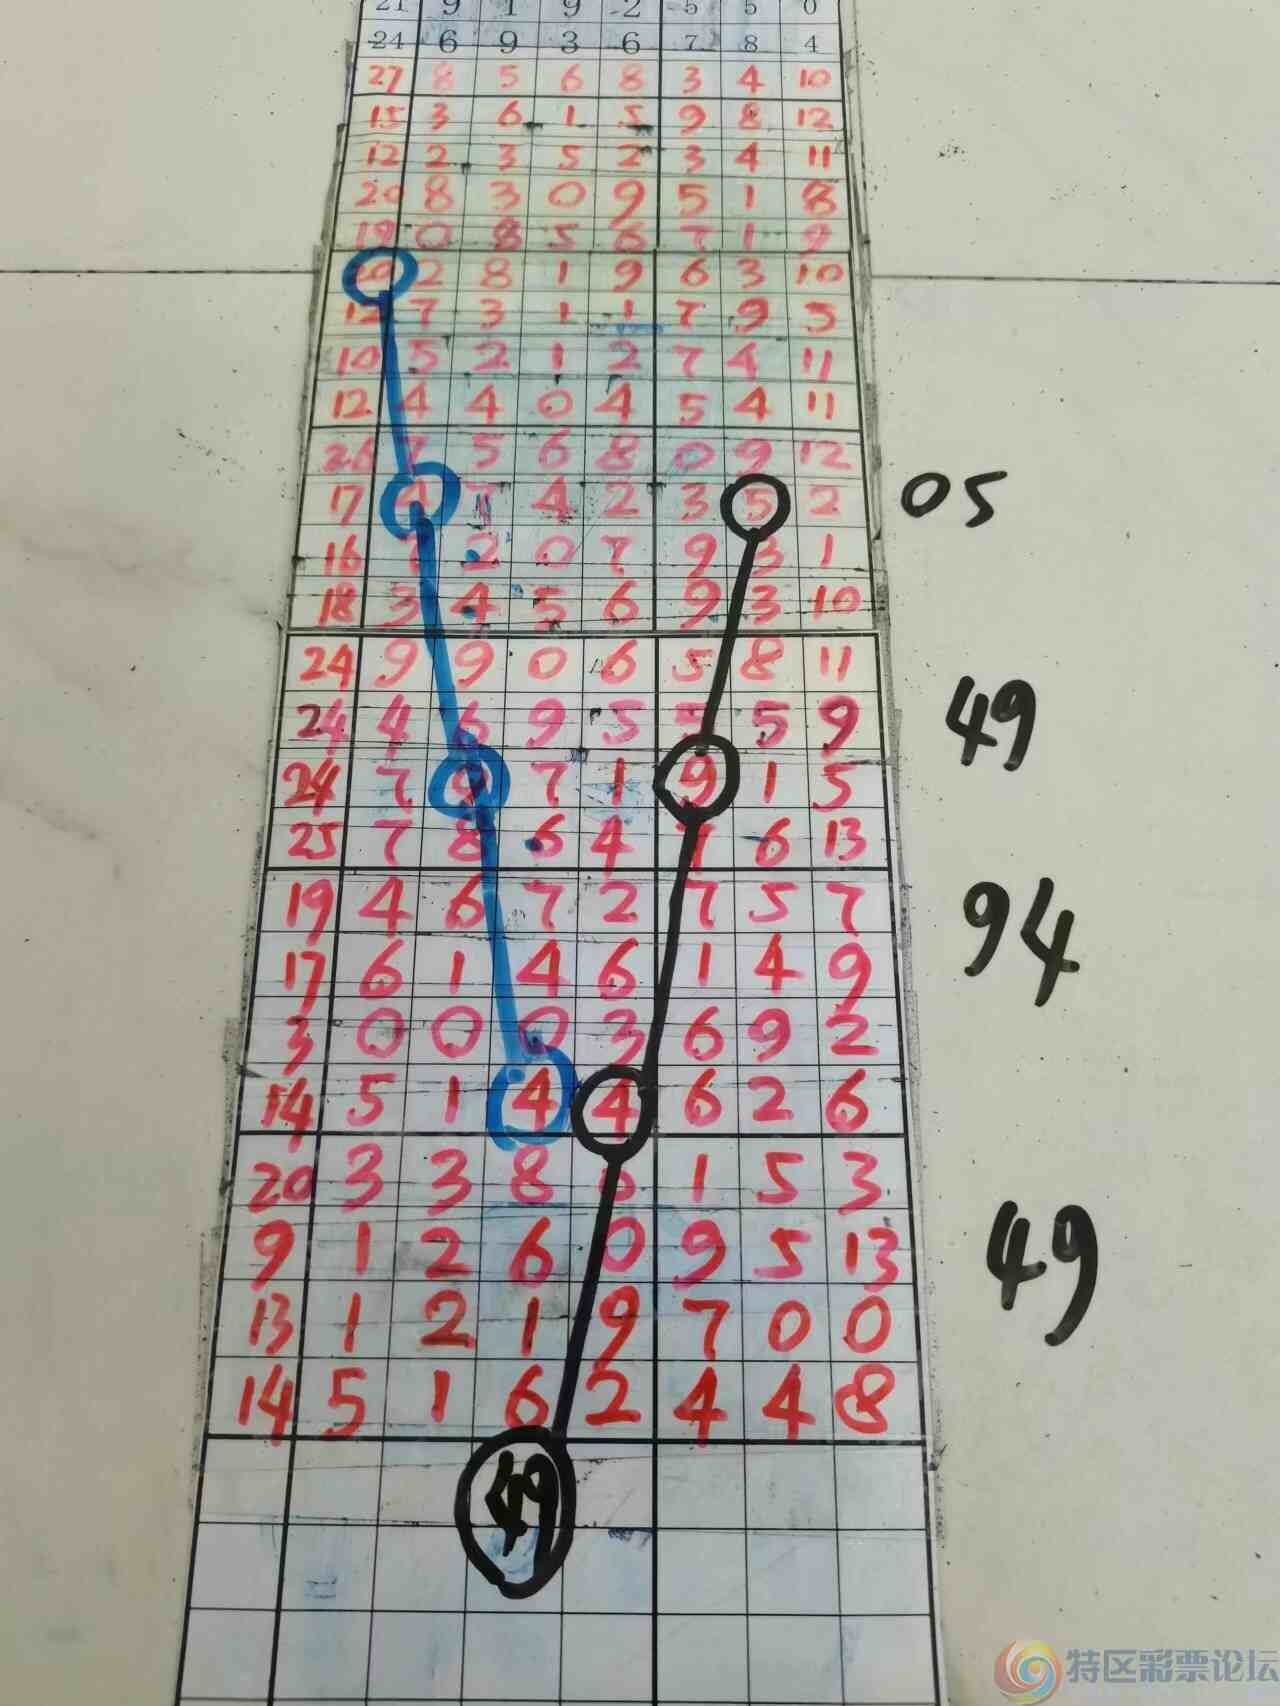 21 9 1 9 2 5 5 0
24 6 9 3 6 7 8 4
27 8 5 6 8 3 4 10
15 3 6 1 5 9 8 12
12 2 3 5 2 3 4 11
20 8 3 0 9 5 1 8
19 0 8 5 6 7 1 9
20 2 8 1 9 6 3 10
12 7 3 1 1 7 9 5
10 5 2 1 2 7 4 11
12 4 4 0 4 5 4 11
26 7 5 6 8 0 9 12
17 4 7 4 2 3 5 2 05
16 7 2 0 7 9 3 1
18 3 4 5 6 9 3 10
24 9 9 0 6 5 8 11
24 4 6 9 5 5 5 9 49
24 7 9 7 1 9 1 5
25 7 8 6 4 7 6 13
19 4 6 7 2 7 5 7 94
17 6 1 4 6 1 4 9
3 0 0 0 3 6 9 2
14 5 1 4 4 6 2 6
20 3 3 8 6 1 5 3
9 1 2 6 0 9 5 13 49
13 1 2 1 9 7 0 0
14 5 1 6 2 4 4 8
49
特区彩票论坛